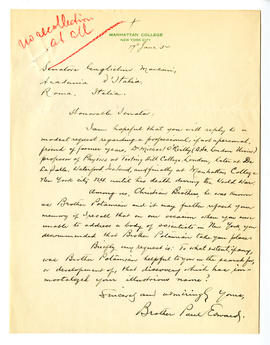 no recollection
at all
MANHATTAN COLLEGE
NEW YORK CITY
17 June 34
Senatore Guglielmo Marconi,
Academia d'Italia,
Roma. Italia.
Honorable Senator:
I am hopeful that you will reply to a
modest request regarding a professional, if not a personal,
friend of former years, Dr Michael O'Reilly (D.Sc. London Univ.)
professor of Physics at Teeting Hill College, London, later at De
La Salle, Waterford, Ireland, and finally at Manhattan College
New York City until his death during the World War.
Among us, Christian Brothers, he was known
as Brother Potamian and it may further refresh your
memory if I recall that on one occasion when you were
unable to address a body of scientists in New York you
recommended that Brother Potamian take your place.
Briefly my request is: To what extent, if any,
was Brother Potamian helpful to you in the search for,
or development of, that discovery which has im-
mortalized your illustrious name?
Sincerely and admiringly Yours,
Brother Paul Edward.